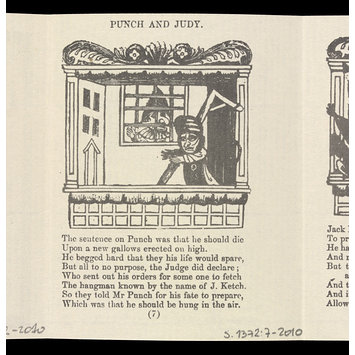 PUNCH AND JUDY.
The sentence on Punch was that he should die
Upon a new gallows erected on high.
He begged hard that they his life would spare,
But all to no purpose, the Judge did declare ;
Who sent out his orders for some one to fetch
The hangman known by the name of J. Ketch.
So they told Mr Punch for his fate to prepare,
Which was that he should be hung in the air.
(7)
Jack
To pr
He ha
And
But t
And t
And i
Allow
2-2010
S.1372:7-2010